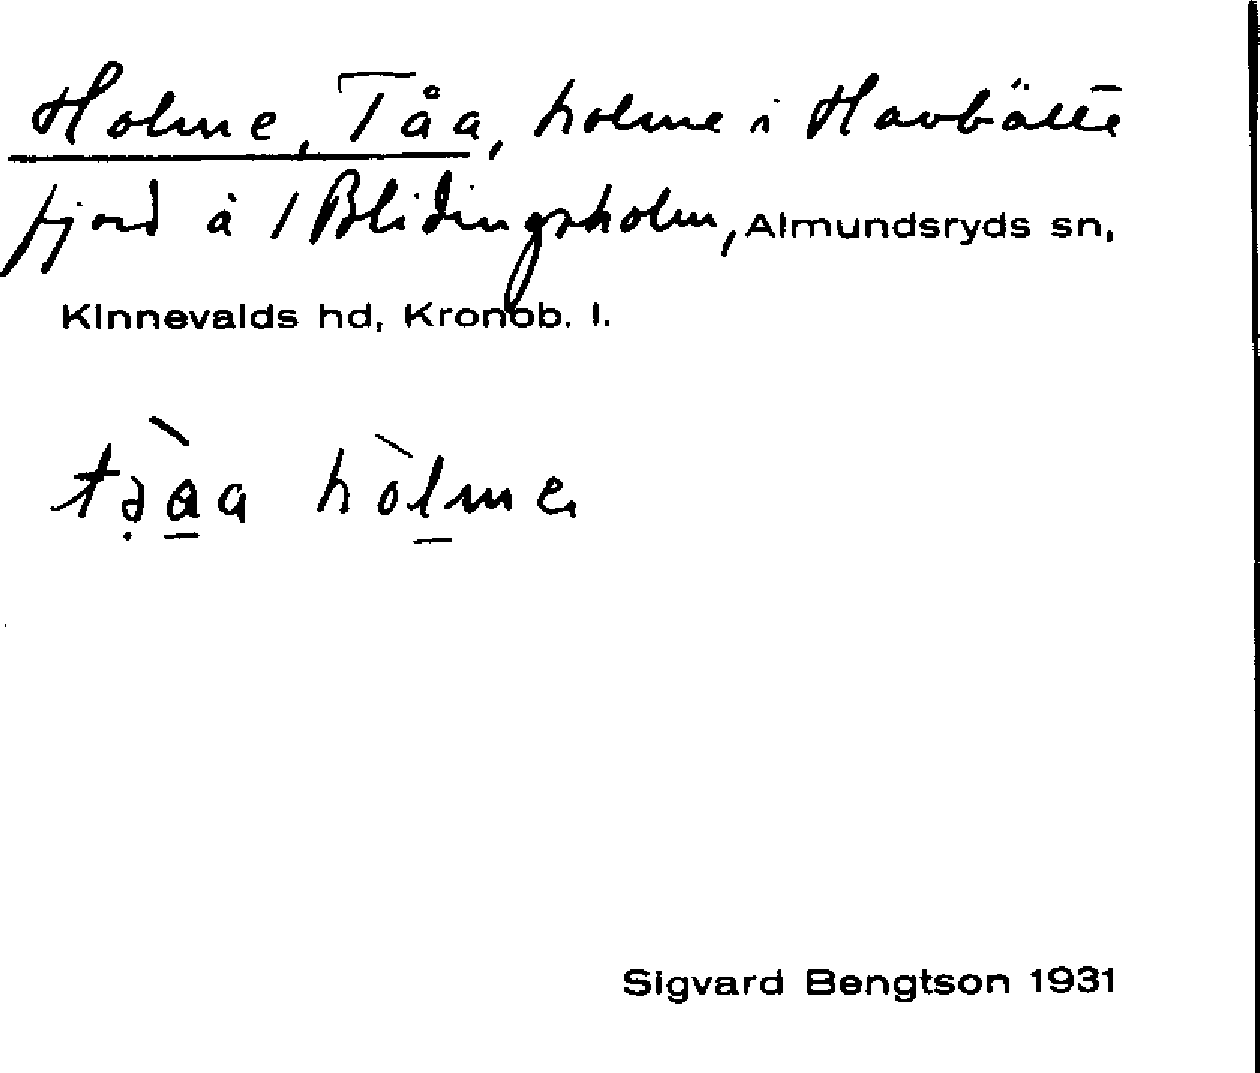 Holme, Tåa, holme i Havbälte
fjord å 1 Blidingsholm, Almundsryds sn,
Kinnevalds hd, Kronob. l.
holme
Sigvard Bengtson 1931